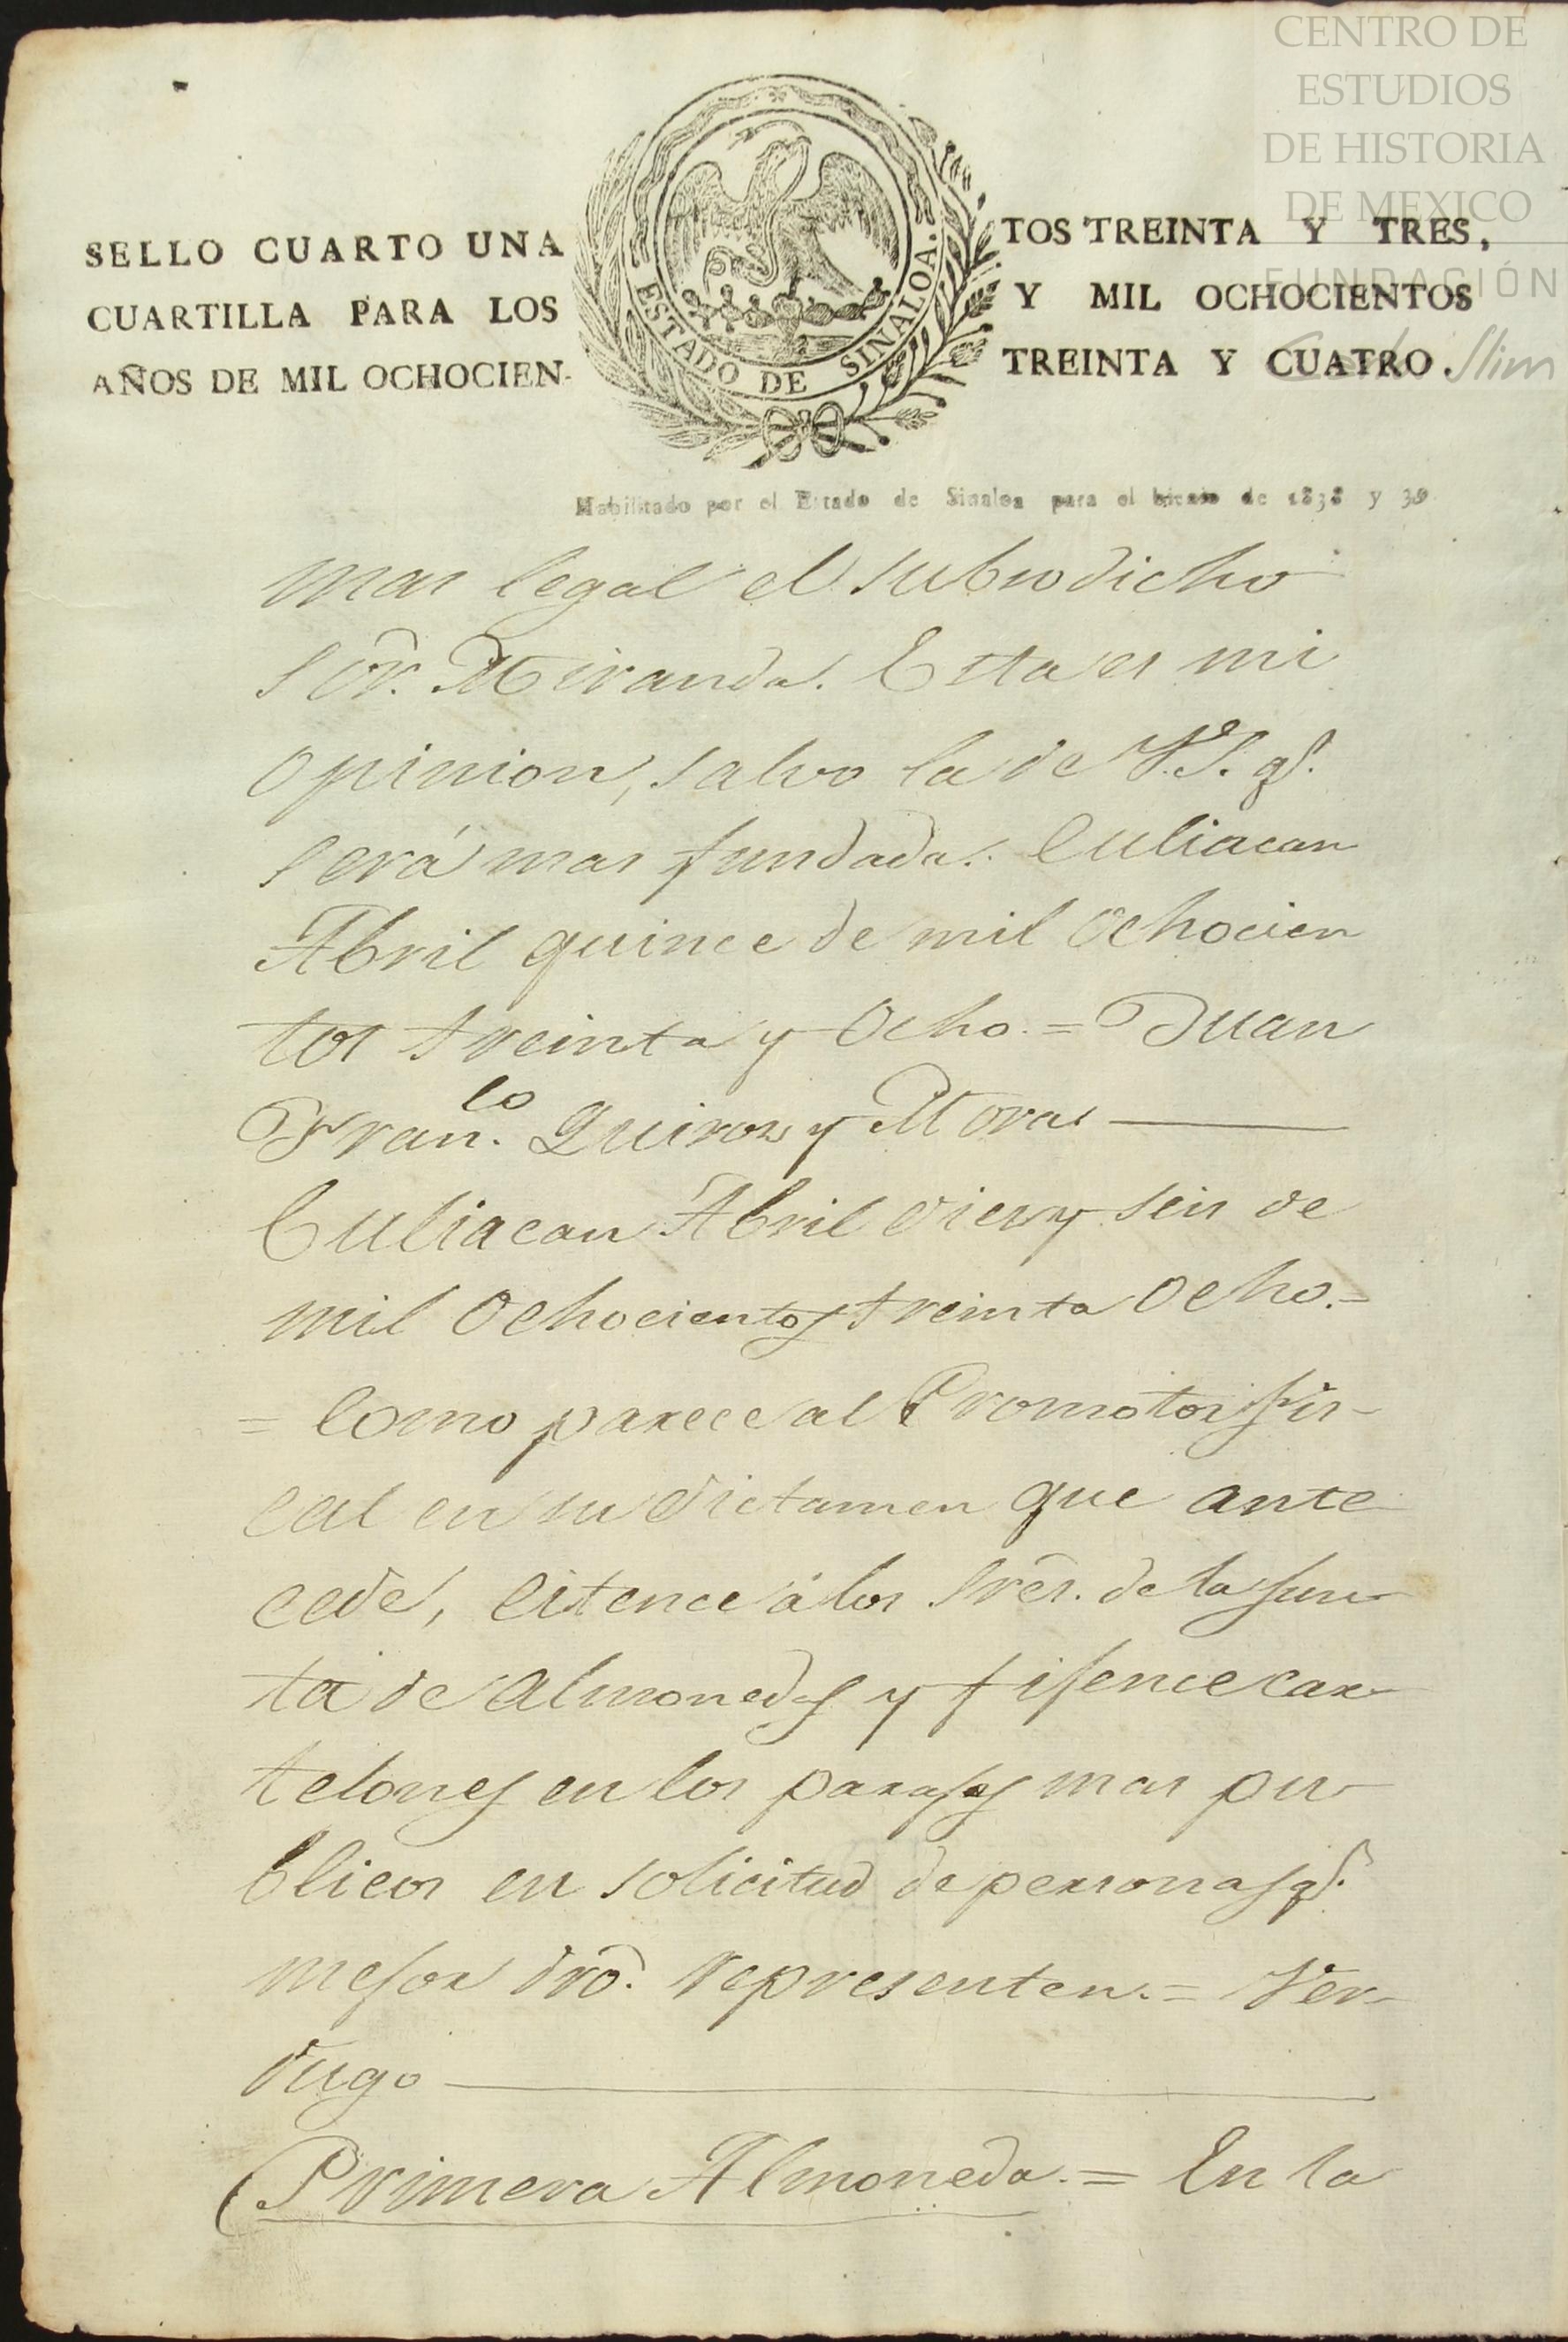 CENTRO DE
ESTUDIOS
DE HISTORIA
DE MEXICO
FUNDACIÓN
Carlos Slim
SELLO CUARTO UNA
CUARTILLA PARA LOS
AÑOS DE MIL OCHOCIEN-
ESTADO DE SINALOA.
TOS TREINTA Y TRES,
Y MIL OCHOCIENTOS
TREINTA Y CUATRO.
Habilitado por el Estado de Sinaloa para el bienio de 1838 y 39
mas legal el subrodicho
Sõr. Miranda. Esta es mi
opinion, salvo la de V.S. q.ᵉ
será mas fundada. Culiacan
Abril quince de mil ochocien
tos treinta y ocho. = Juan
Fran.co Quiros y Moras
Culiacan Abril diez y seis de
mil ochocientos treinta ocho. =
= Como parece al Promotor Fis-
cal en su dictamen que ante
cede, citence á los Srẽs. de la Jun
ta de almonedas y fijence car
telones en los parajes mas pu
blicos en solicitud de personas q.ᵉ
mejor drõ. representen. = Ver-
dugo
Primera Almoneda. = En la